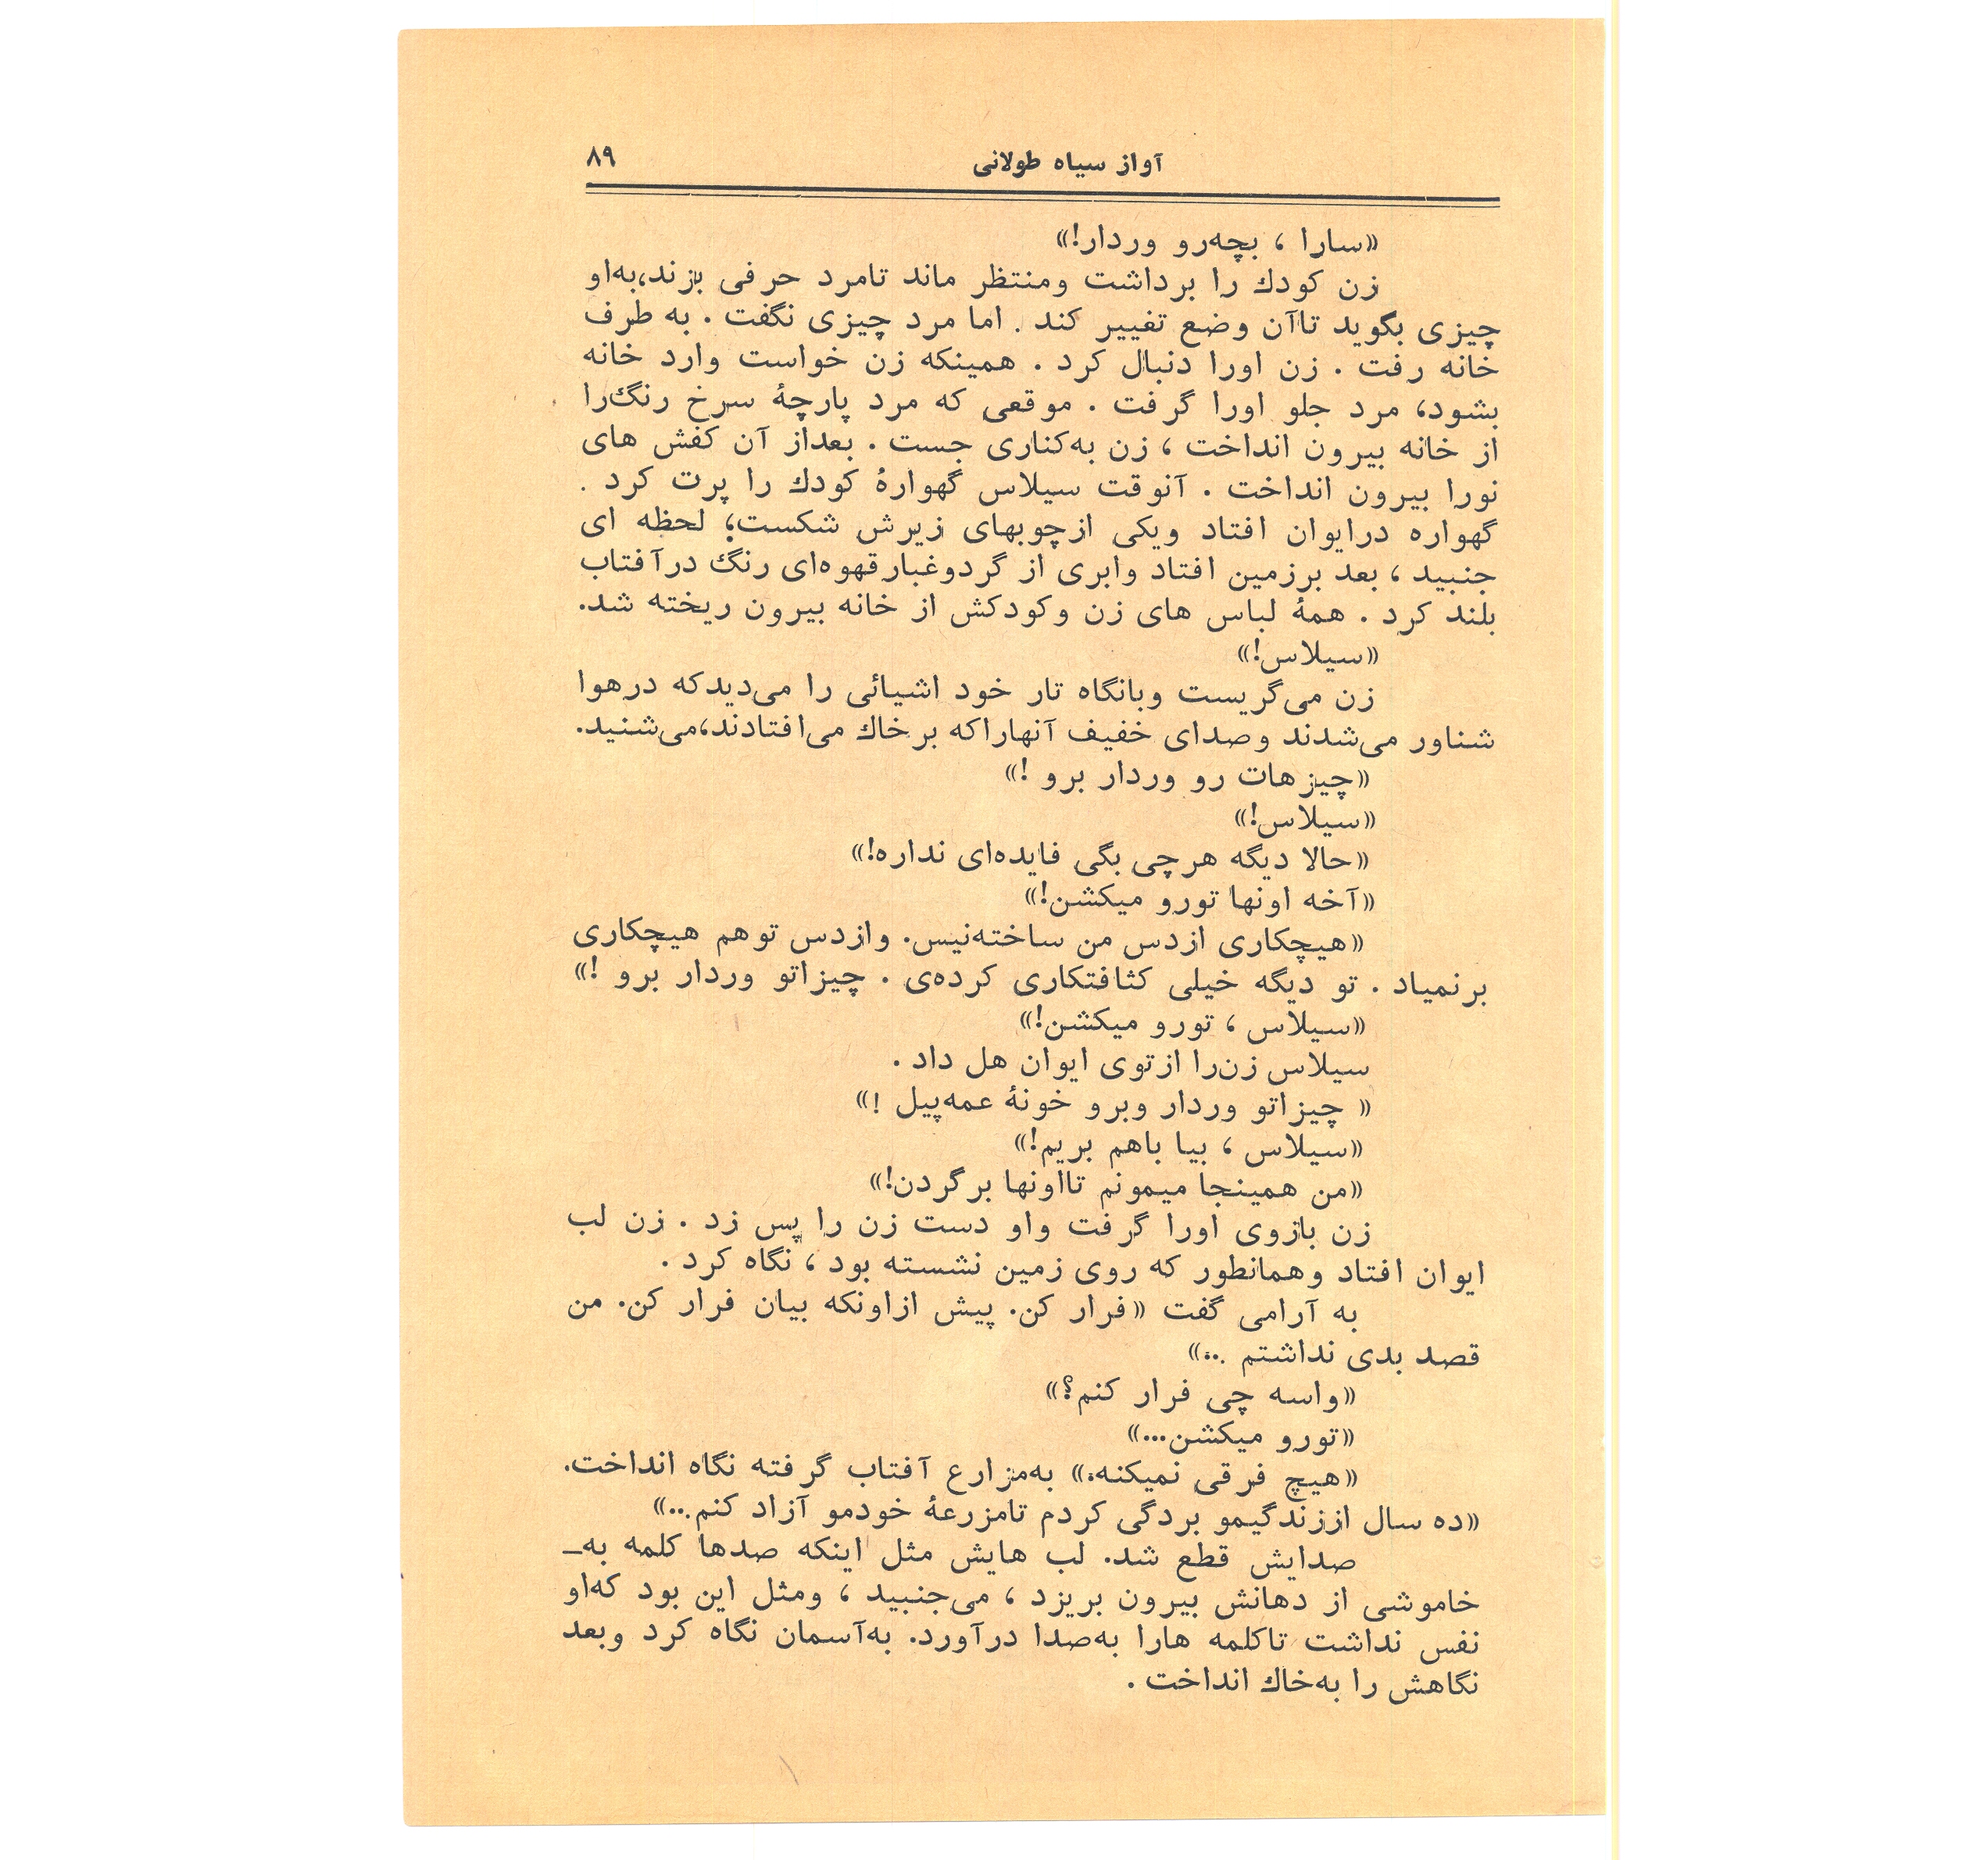 آواز سیاه طولانی ۸۹
«سارا ، بچه‌رو وردار!»
زن كودك را برداشت ومنتظر ماند تامرد حرفی بزند،به‌او
چیزی بگوید تاآن وضع تغییر كند . اما مرد چیزی نگفت . به طرف
خانه رفت . زن اورا دنبال كرد . همینكه زن خواست وارد خانه
بشود، مرد جلو اورا گرفت . موقعی كه مرد پارچۀ سرخ رنگ‌را
از خانه بیرون انداخت ، زن به‌كناری جست . بعداز آن كفش های
نورا بیرون انداخت . آنوقت سیلاس گهوارۀ كودك را پرت كرد .
گهواره درایوان افتاد ویكی ازچوبهای زیرش شكست؛ لحظه ای
جنبید ، بعد برزمین افتاد وابری از گردوغبارقهوه‌ای رنگ درآفتاب
بلند كرد . همۀ لباس های زن وكودكش از خانه بیرون ریخته شد.
«سیلاس!»
زن می‌گریست وبانگاه تار خود اشیائی را می‌دیدكه درهوا
شناور می‌شدند وصدای خفیف آنهاراكه برخاك می‌افتادند،می‌شنید.
«چیزهات رو وردار برو !»
«سیلاس!»
«حالا دیگه هرچی بگی فایده‌ای نداره!»
«آخه اونها تورو میكشن!»
«هیچكاری ازدس من ساخته‌نیس. وازدس توهم هیچكاری
برنمیاد . تو دیگه خیلی كثافتكاری كرده‌ی . چیزاتو وردار برو !»
«سیلاس ، تورو میكشن!»
سیلاس زن‌را ازتوی ایوان هل داد .
« چیزاتو وردار وبرو خونۀ عمه‌پیل !»
«سیلاس ، بیا باهم بریم!»
«من همینجا میمونم تااونها برگردن!»
زن بازوی اورا گرفت واو دست زن را پس زد . زن لب
ایوان افتاد وهمانطور كه روی زمین نشسته بود ، نگاه كرد .
به آرامی گفت «فرار كن. پیش ازاونكه بیان فرار كن. من
قصد بدی نداشتم ...»
«واسه چی فرار كنم؟»
«تورو میكشن...»
«هیچ فرقی نمیكنه.» به‌مزارع آفتاب گرفته نگاه انداخت.
«ده سال اززندگیمو بردگی كردم تامزرعۀ خودمو آزاد كنم...»
صدایش قطع شد. لب هایش مثل اینكه صدها كلمه به‌ـ
خاموشی از دهانش بیرون بریزد ، می‌جنبید ، ومثل این بود كه‌او
نفس نداشت تاكلمه هارا به‌صدا درآورد. به‌آسمان نگاه كرد وبعد
نگاهش را به‌خاك انداخت .